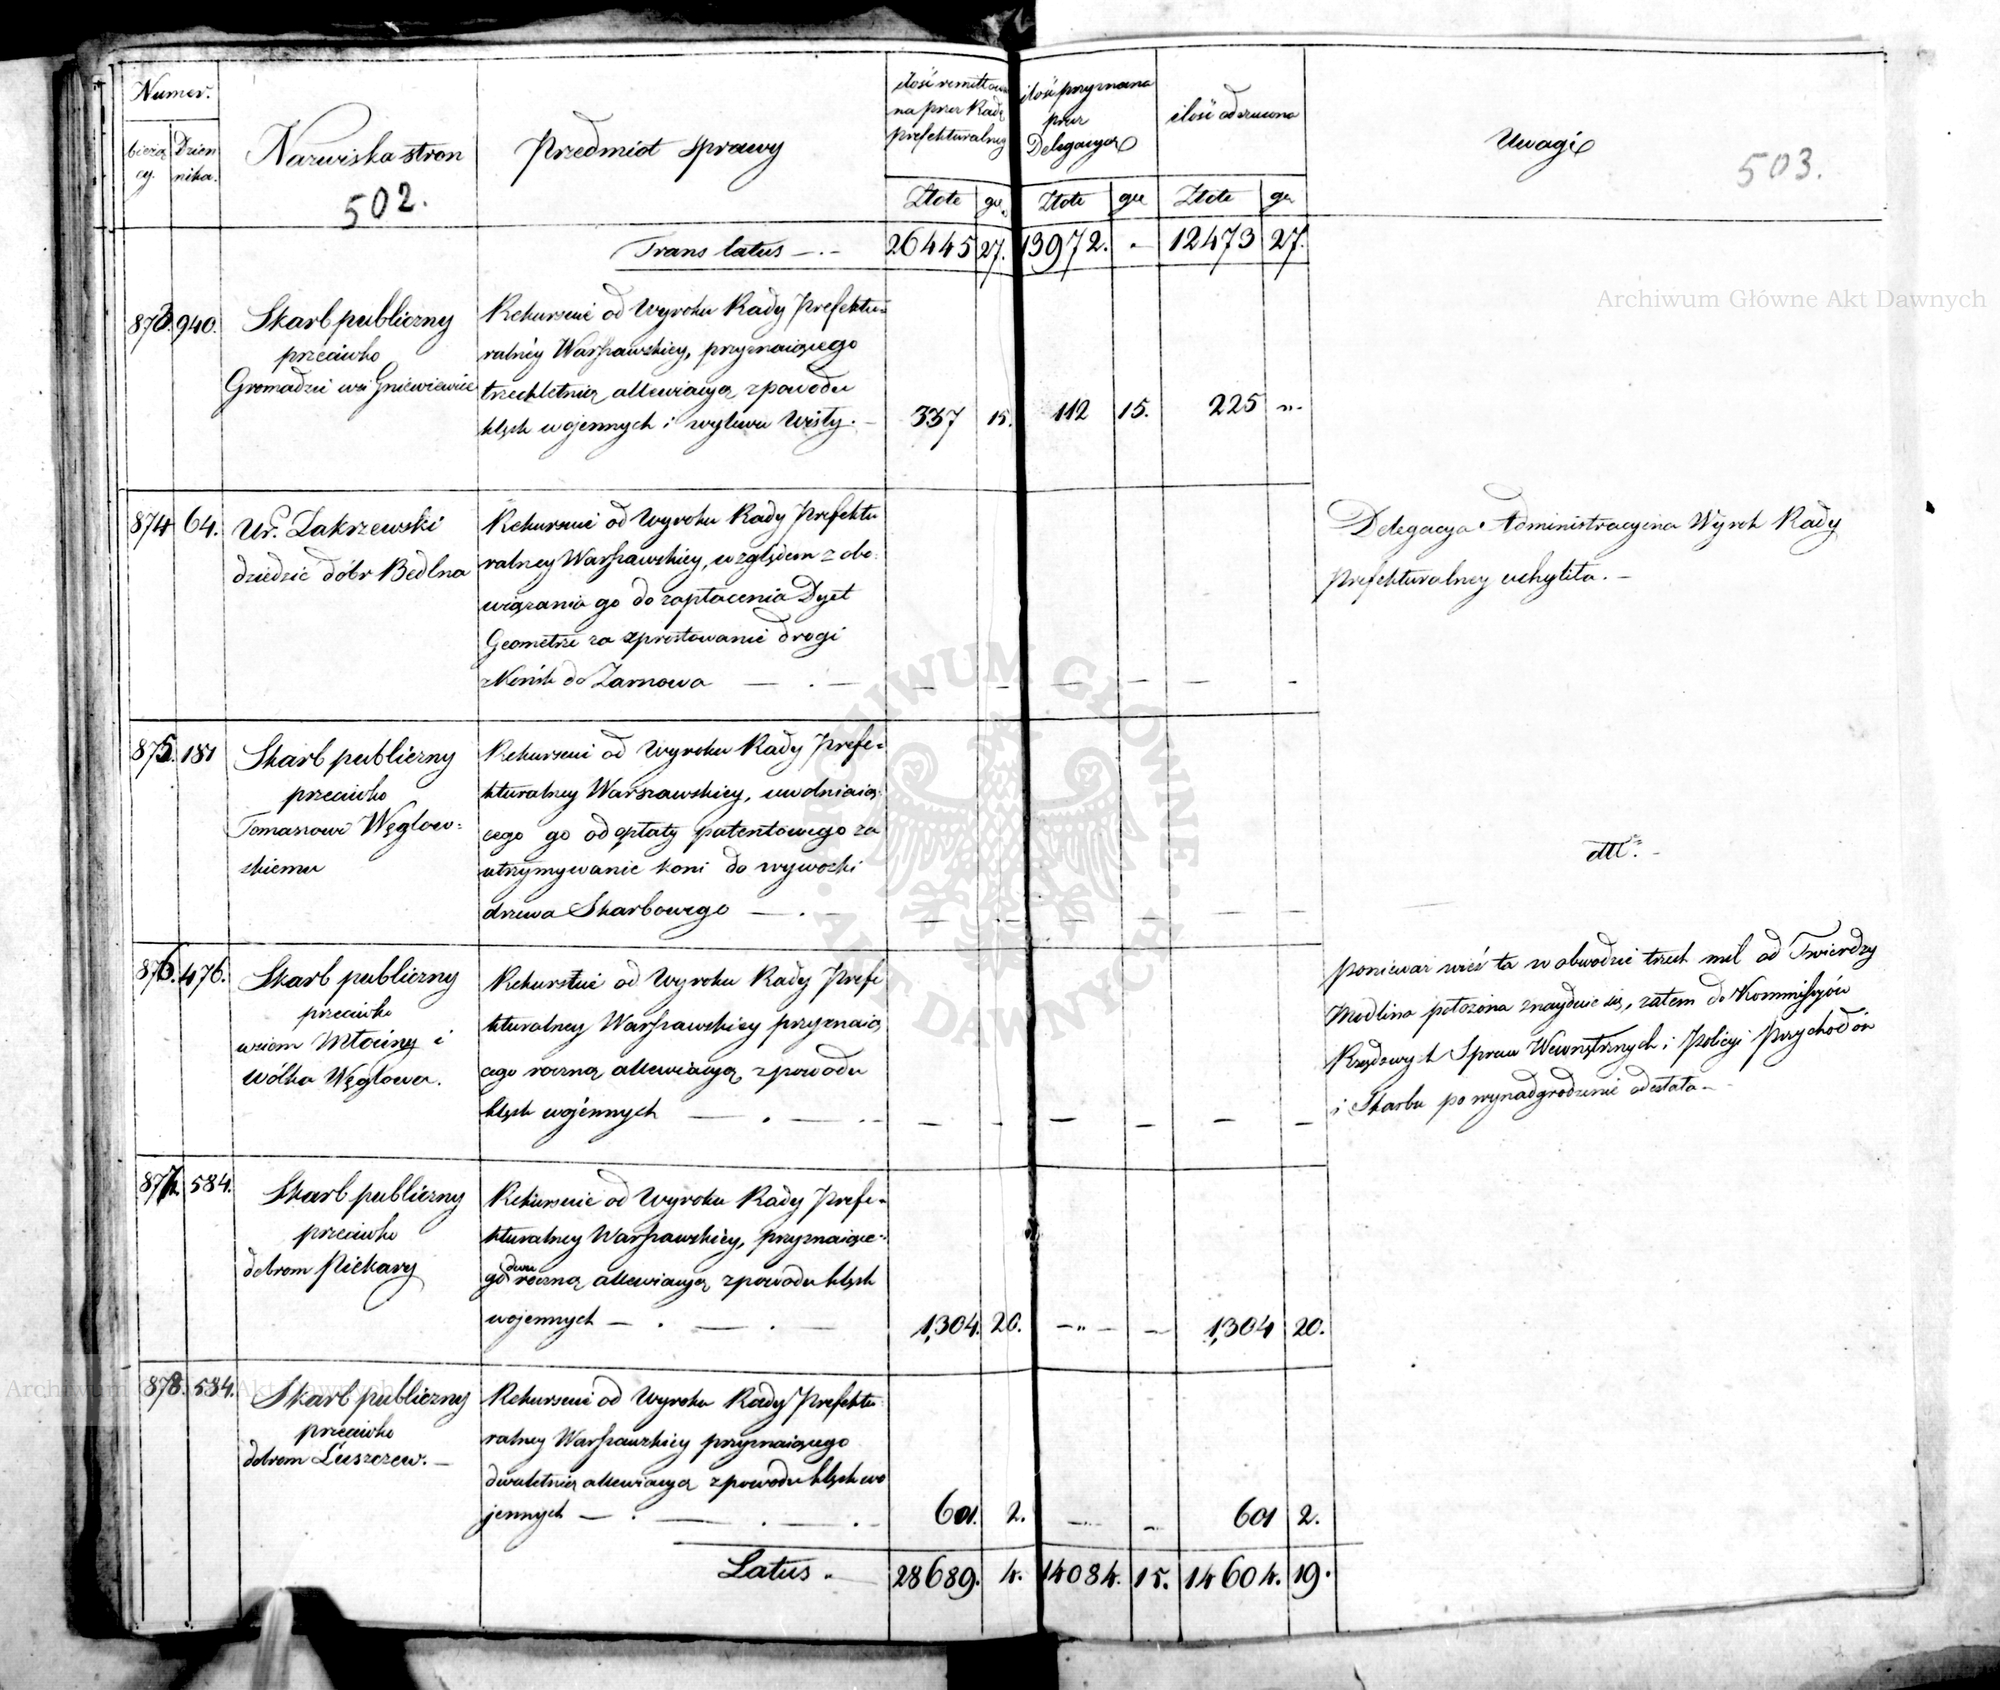 Numer.
bieżą
cy.
Dzien
nika.
Nazwiska stron
502.
Przedmiot sprawy
ilość remittowa
na przez Radę
Prefekturalną
Złote
gr.
ilość przyznana
przez
Delegacyą
Złote
gr
ilość odrzucona
Złote
gr
Uwagi
503.
Trans latus —.— 26445 27. 13972. - 12473 27.
Archiwum Główne Akt Dawnych
873. 940.
Skarb publiczny
przeciwko
Gromadzie wsi Gniewiewice
Rekursuie od Wyroku Rady Prefektu=
ralnéy Warszawskiey, przyznaiącego
trzechletnią allewiacyą z powodu
klęsk wojennych i wylewu Wisły. —
337 15. 112 15. 225 „.
874 64.
Ur. Zakrzewski
dziedzic dóbr Bedlna
Rekursuie od Wyroku Rady Prefektu
ralney Warszawskiey, względem zobo=
wiązania go do zapłacenia Dyet
Geometrze za sprostowanie drogi
z Końsk do Żarnowa — . —
— - — - — -
Delegacya Administracyina Wyrok Rady
Prefekturalney uchyliła. —
875. 181
Skarb publiczny
przeciwko
Tomaszowi Węglow=
skiemu
Rekursuie od Wyroku Rady Prefe=
kturalney Warszawskiey, uwolniaią=
cego go od opłaty patentowego za
utrzymywanie koni do wywozki
drzewa Skarbowego — . —
— - — - — —
dtt°. —
876. 476.
Skarb publiczny
przeciwko
wsiom Młociny i
Wólka Węglowa.
Rekursuie od Wyroku Rady Prefe
kturalney Warszawskiey przyznaią
cego roczną allewiacyą z powodu
klęsk wojennych — . — . .
— - — — — —
Ponieważ wieś ta w obwodzie trzech mil od Twierdzy
Modlina położona znayduie się, zatem do Kommissyów
Rządowych Spraw Wewnętrznych i Policyi Przychodów
i Skarbu po wynadgrodzenie odesłała —
877. 584.
Skarb publiczny
przeciwko
dobrom Piekary
Rekursuie od Wyroku Rady Prefe=
kturalney Warszawskiey, przyznaiące=
dwu
go roczną allewiacyą z powodu klęsk
wojennych — . — . —
1,304. 20. —„— — 1,304 20.
878. 584.
Skarb publiczny
przeciwko
dobrom Luszczew. —
Rekursuie od Wyroku Rady Prefektu
ralney Warszawskiey przyznaiącego
dwuletnią allewiacyą z powodu klęsk wo
jennych — . — . — .
601. 2. — — 601 2.
Latus. — 28689. 4. 14084. 15. 14604. 19.
ARCHIWUM GŁÓWNE
AKT DAWNYCH